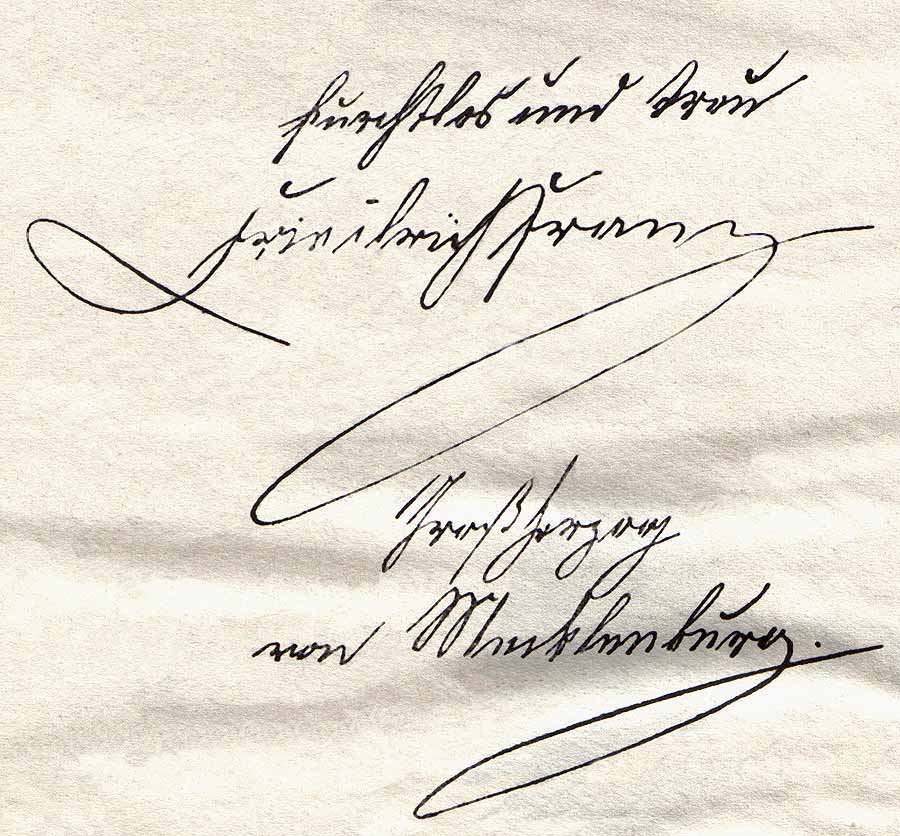 Furchtlos und treu
Friedrich Franz
Großherzog
von Mecklenburg.